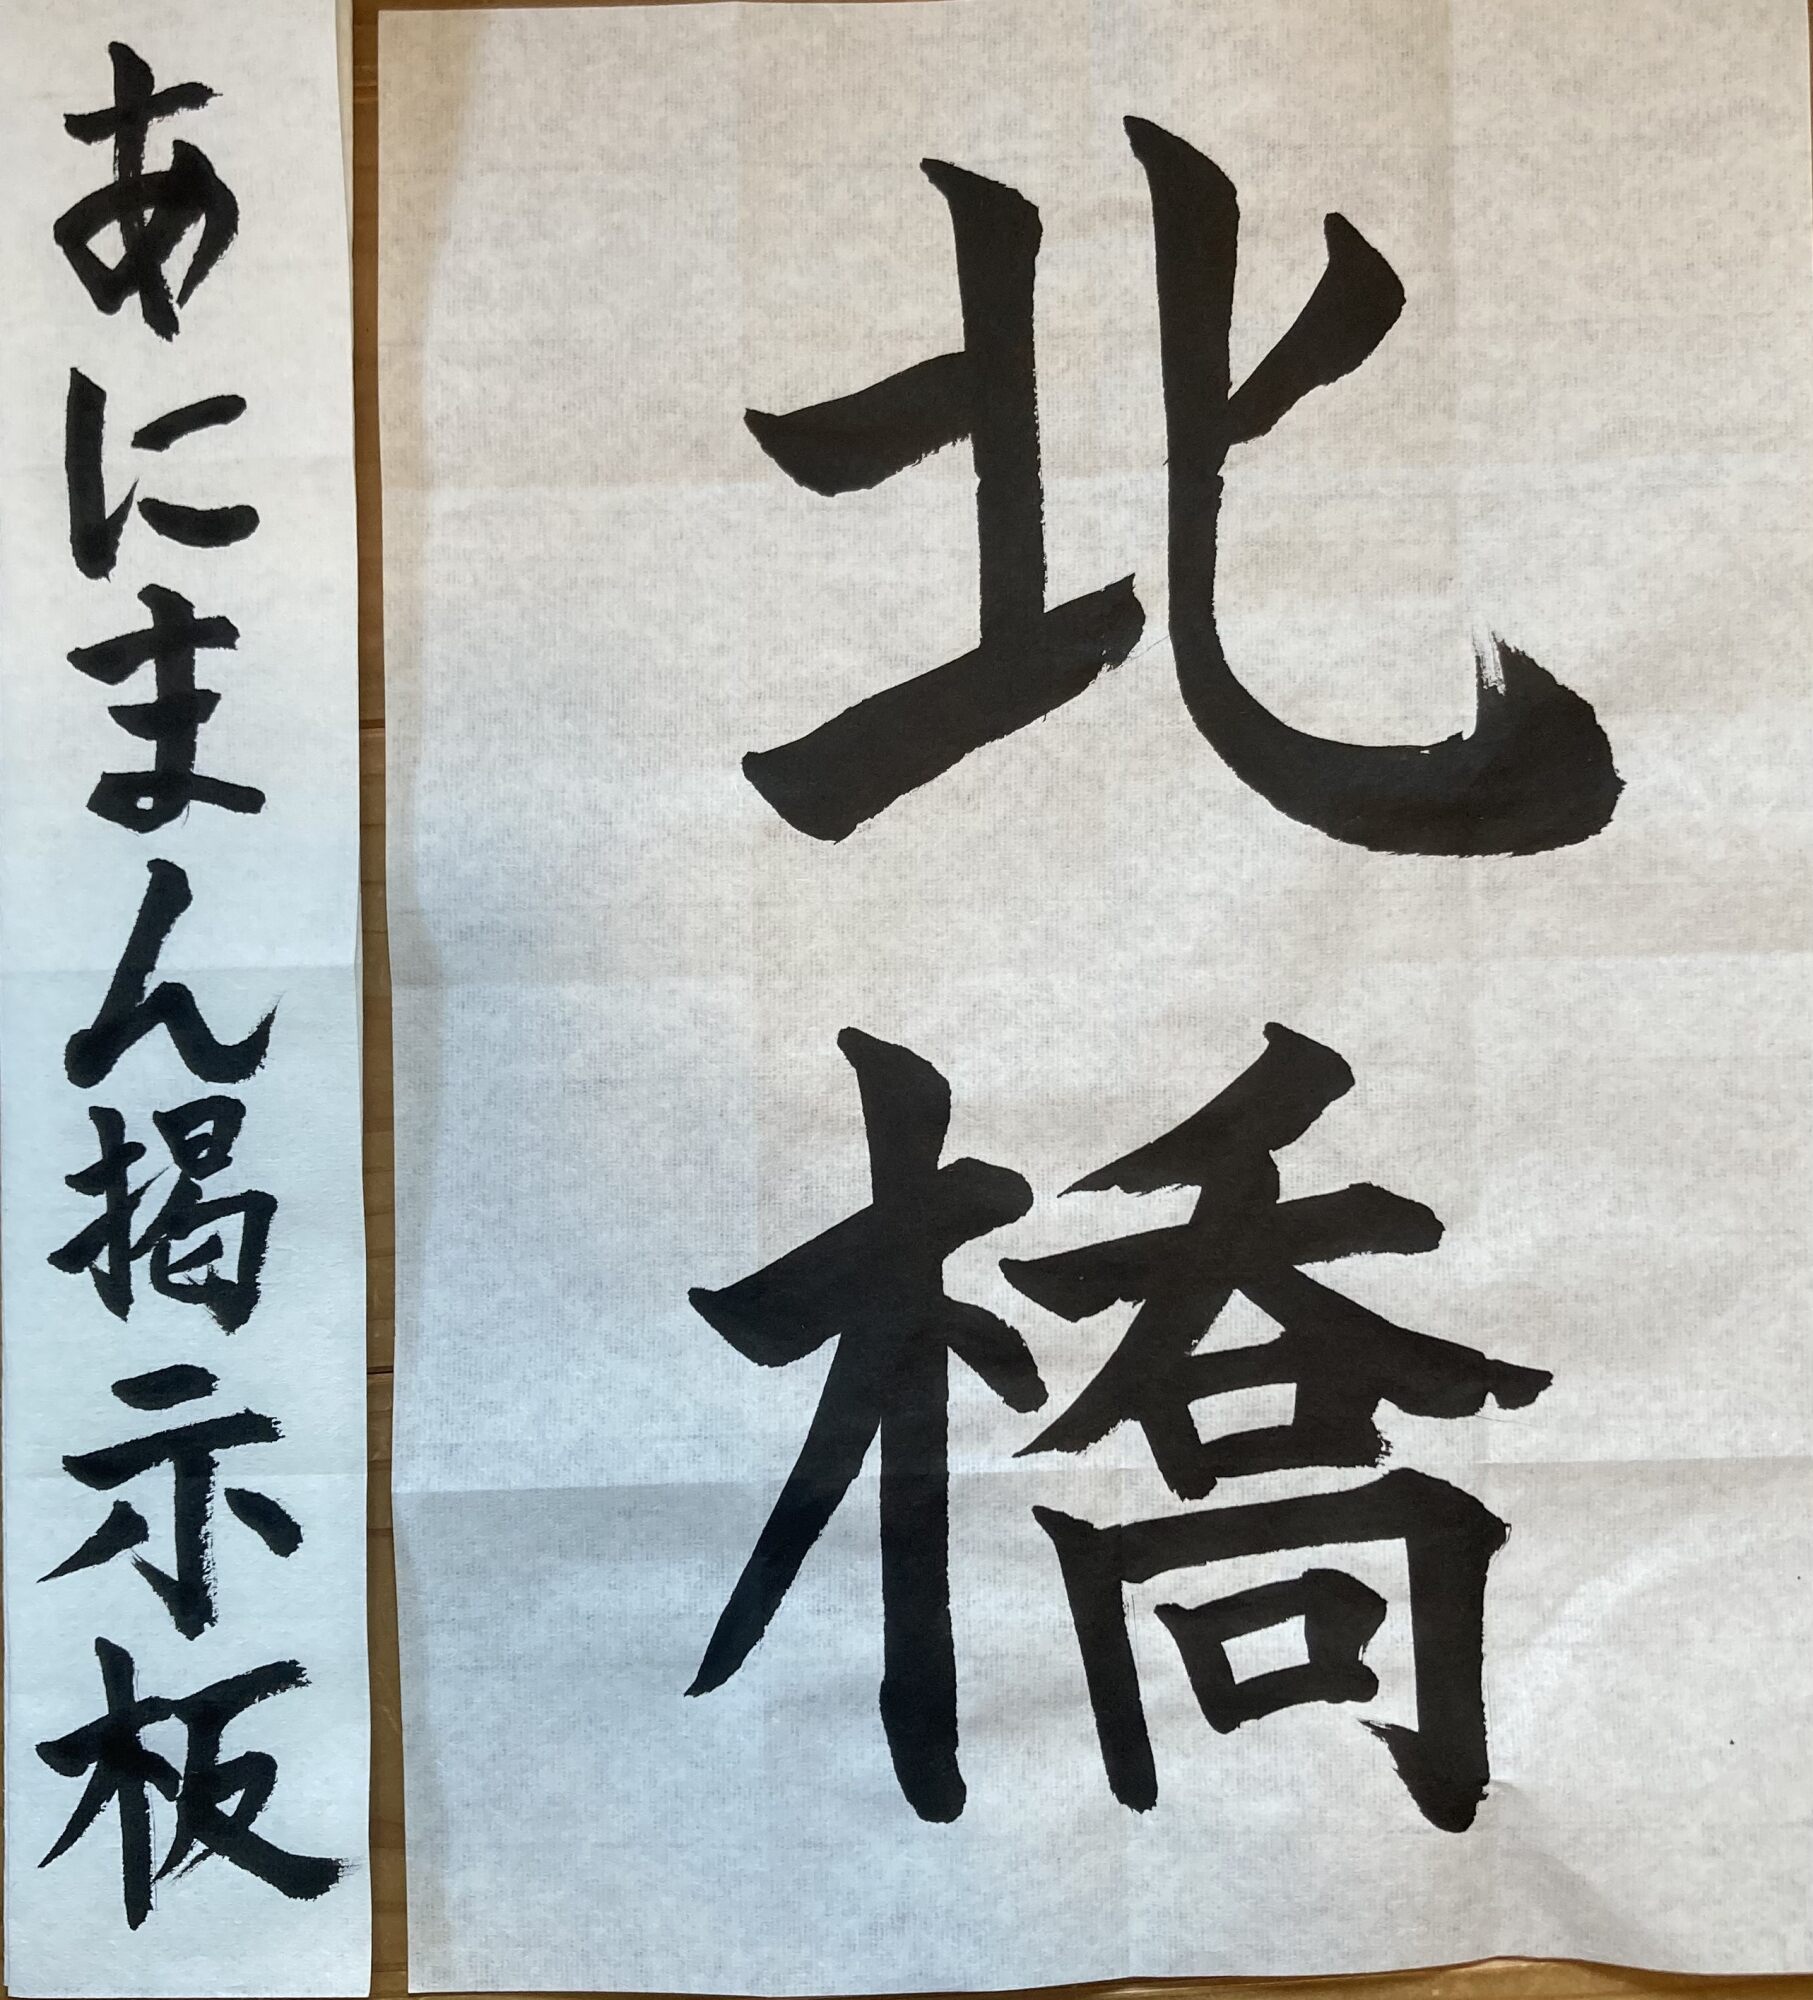 北橋
あにまん掲示板